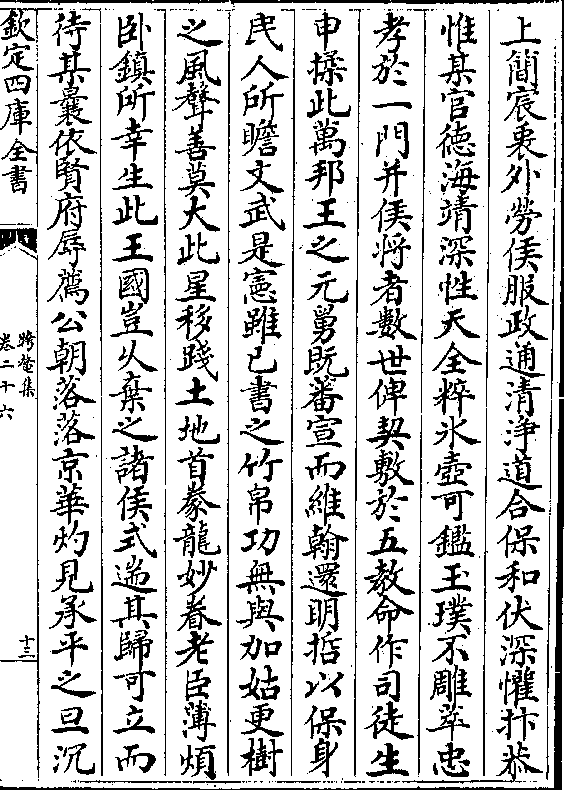 上簡宸衷外勞侯服政通清浄道合保和伏深懽抃恭
惟某官德海靖深性天全粹氷壺可鑑玉璞不雕萃忠
孝於一門并侯將者數世俾契敷於五教命作司徒生
申揉此萬邦王之元舅既蕃宣而維翰還明哲以保身
民人所瞻文武是憲雖已書之竹帛功無與加姑更樹
之風聲善莫大此星移踐土地首豢龍妙眷老臣薄煩
卧鎮所幸生此王國豈乆棄之諸侯式遄其歸可立而
待某曩依賢府辱薦公朝落落京華灼見承平之旦沉
欽定四庫全書
跨鼇集
卷二十六
十三